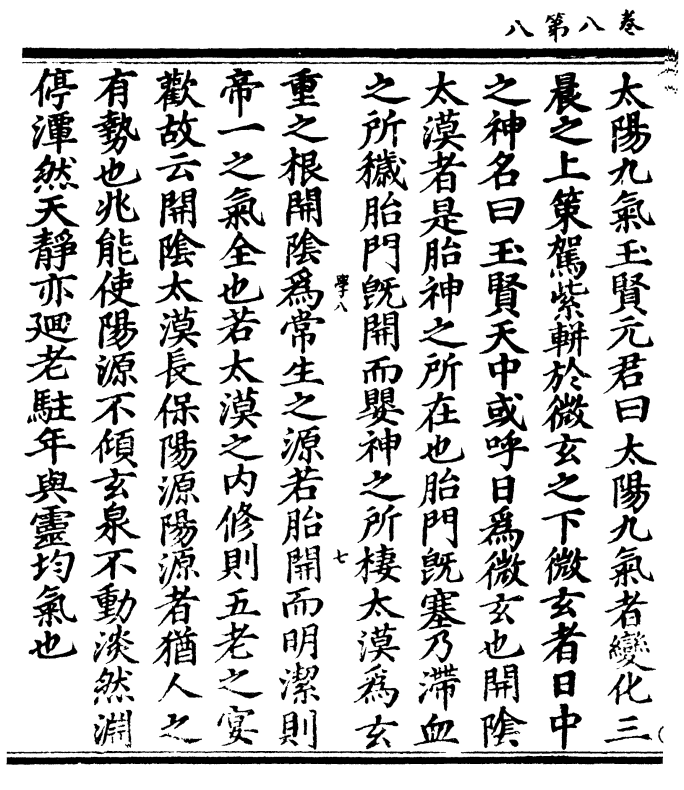 卷八第八
太陽九氣玉賢元君曰太陽九氣者變化三
晨之上策駕紫軿於微玄之下微玄者日中
之神名曰玉賢天中或呼日爲微玄也開陰
太漠者是胎神之所在也胎門旣塞乃滯血
之所穢胎門旣開而嬰神之所棲太漠爲玄
學八
七
重之根開陰爲常生之源若胎開而明潔則
帝一之氣全也若太漠之內修則五老之宴
歡故云開陰太漠長保陽源陽源者猶人之
有勢也兆能使陽源不傾玄泉不動淡然淵
停潭然天靜亦𢌞老駐年與靈均氣也